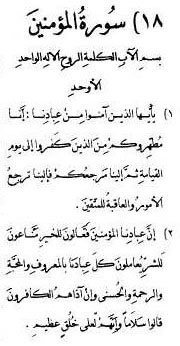 ١٨) سورة المؤمنين
بسم الآب الكلمة الروح الاله الواحد
الأوحد
١) يأيها الذين آمنوا من عبادنا: إنا
مطهروكم من الذين كفروا إلى يوم
القيامة ثم إلينا مرجعكم فإلينا ترجع
الأمور والعاقبة للمتقين.
٢) إن عبادنا المؤمنين فعالون للخير مناعون
للشر يعاملون كل عبادنا بالمعروف والمحبة
والرحمة والحسنى وإن آذاهم الكافرون
قالوا سلاماً وإنهم لعلى خلق عظيم.